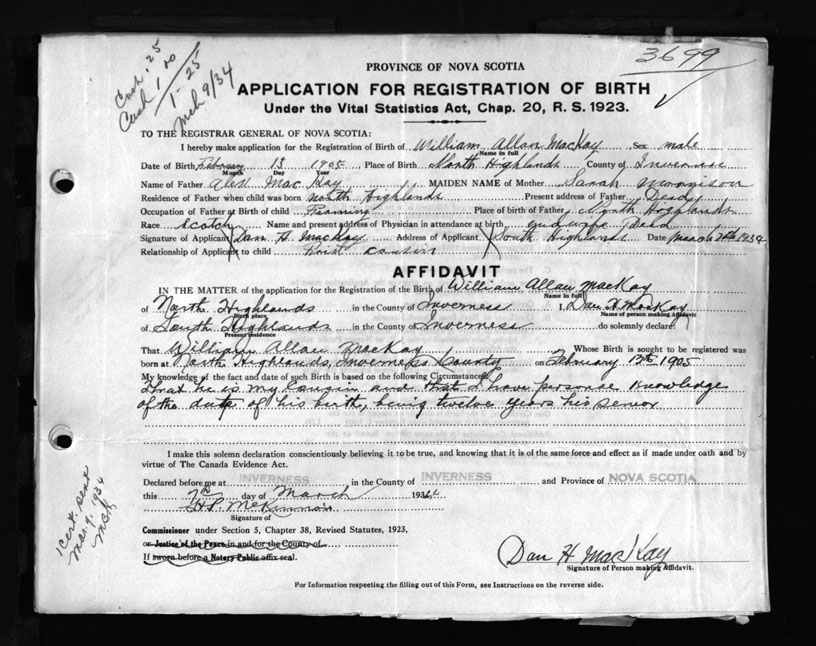 3699
Cash .25
Cash 1 00
1.25
Mch 9/34
PROVINCE OF NOVA SCOTIA
APPLICATION FOR REGISTRATION OF BIRTH
Under the Vital Statistics Act, Chap. 20, R. S. 1923.
TO THE REGISTRAR GENERAL OF NOVA SCOTIA:
I hereby make application for the Registration of Birth of William Allan MacKay Sex male
Name in full
Date of Birth February 13 1905 Place of Birth North Highlands County of Inverness
Month Day Year
Name of Father Alex Mac Kay MAIDEN NAME of Mother Sarah Morrison
Residence of Father when child was born North Highlands Present address of Father Dead
Occupation of Father at Birth of child Farming Place of birth of Father North Highlands
Race Scotch Name and present address of Physician in attendance at birth Dead
Signature of Applicant Dan H. MacKay Address of Applicant South Highlands Date March 7th 1934
Relationship of Applicant to child First cousin
AFFIDAVIT
IN THE MATTER of the application for the Registration of the Birth of William Allan MacKay
Name in full
of North Highlands in the County of Inverness I, Dan H. MacKay
Birth place Name of person making Affidavit
of South Highlands in the County of Inverness do solemnly declare:
Present residence
That William Allan MacKay Whose Birth is sought to be registered was
born at North Highlands, Inverness County on February 13th 1905
My knowledge of the fact and date of such Birth is based on the following Circumstances
That he is my cousin and that I have personal knowledge
of the date of his birth, being twelve years his senior
I make this solemn declaration conscientiously believing it to be true, and knowing that it is of the same force and effect as if made under oath and by
virtue of The Canada Evidence Act.
Declared before me at INVERNESS in the County of INVERNESS and Province of NOVA SCOTIA
this 7th day of March 1934
McKinnon
Signature of
Commissioner under Section 5, Chapter 38, Revised Statutes, 1923,
or Justice of the Peace in and for the County of
If sworn before a Notary Public affix seal.
Dan H MacKay
Signature of Person making Affidavit.
For Information respecting the filling out of this Form, see Instructions on the reverse side.
Cert. sent
Mar 9. 1934